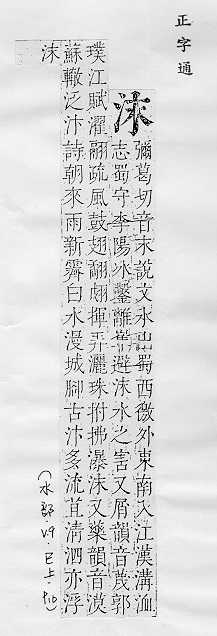 正字通
沫
彌葛切音末說文水出蜀西徼外東南入江漢溝洫
志蜀守李陽冰鑿離避沫水之害又屑韻音蔑郭
璞江賦濯翮疏風鼓翅揮弄灑珠拊拂瀑沫又藥韻音漠
蘇轍泛汴詩朝來雨新霽白水漫城腳古汴多流苴清泗亦浮
沫
(水部.巳上.